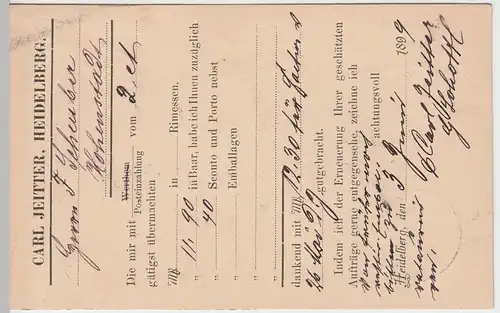 CARL JEITTER, HEIDELBERG.
Herrn F. Scheuber
Hohenstadt
Die mir mit Werthem vom 2 ct
Posteinzahlung
gütigst übermachten
Mk. in Rimessen,
„ 11. 90 in Baar, habe ich Ihnen zuzüglich
„ 40 Sconto und Porto nebst
„ Emballagen
dankend mit Mk. 12.30 für Factur d
26 Mai 99 gutgebracht.
Indem ich der Erneuerung Ihrer geschätzten
Aufträge gerne entgegensehe, zeichne ich
achtungsvoll
Heidelberg, den 3 Juni 1899
Carl Jeitter